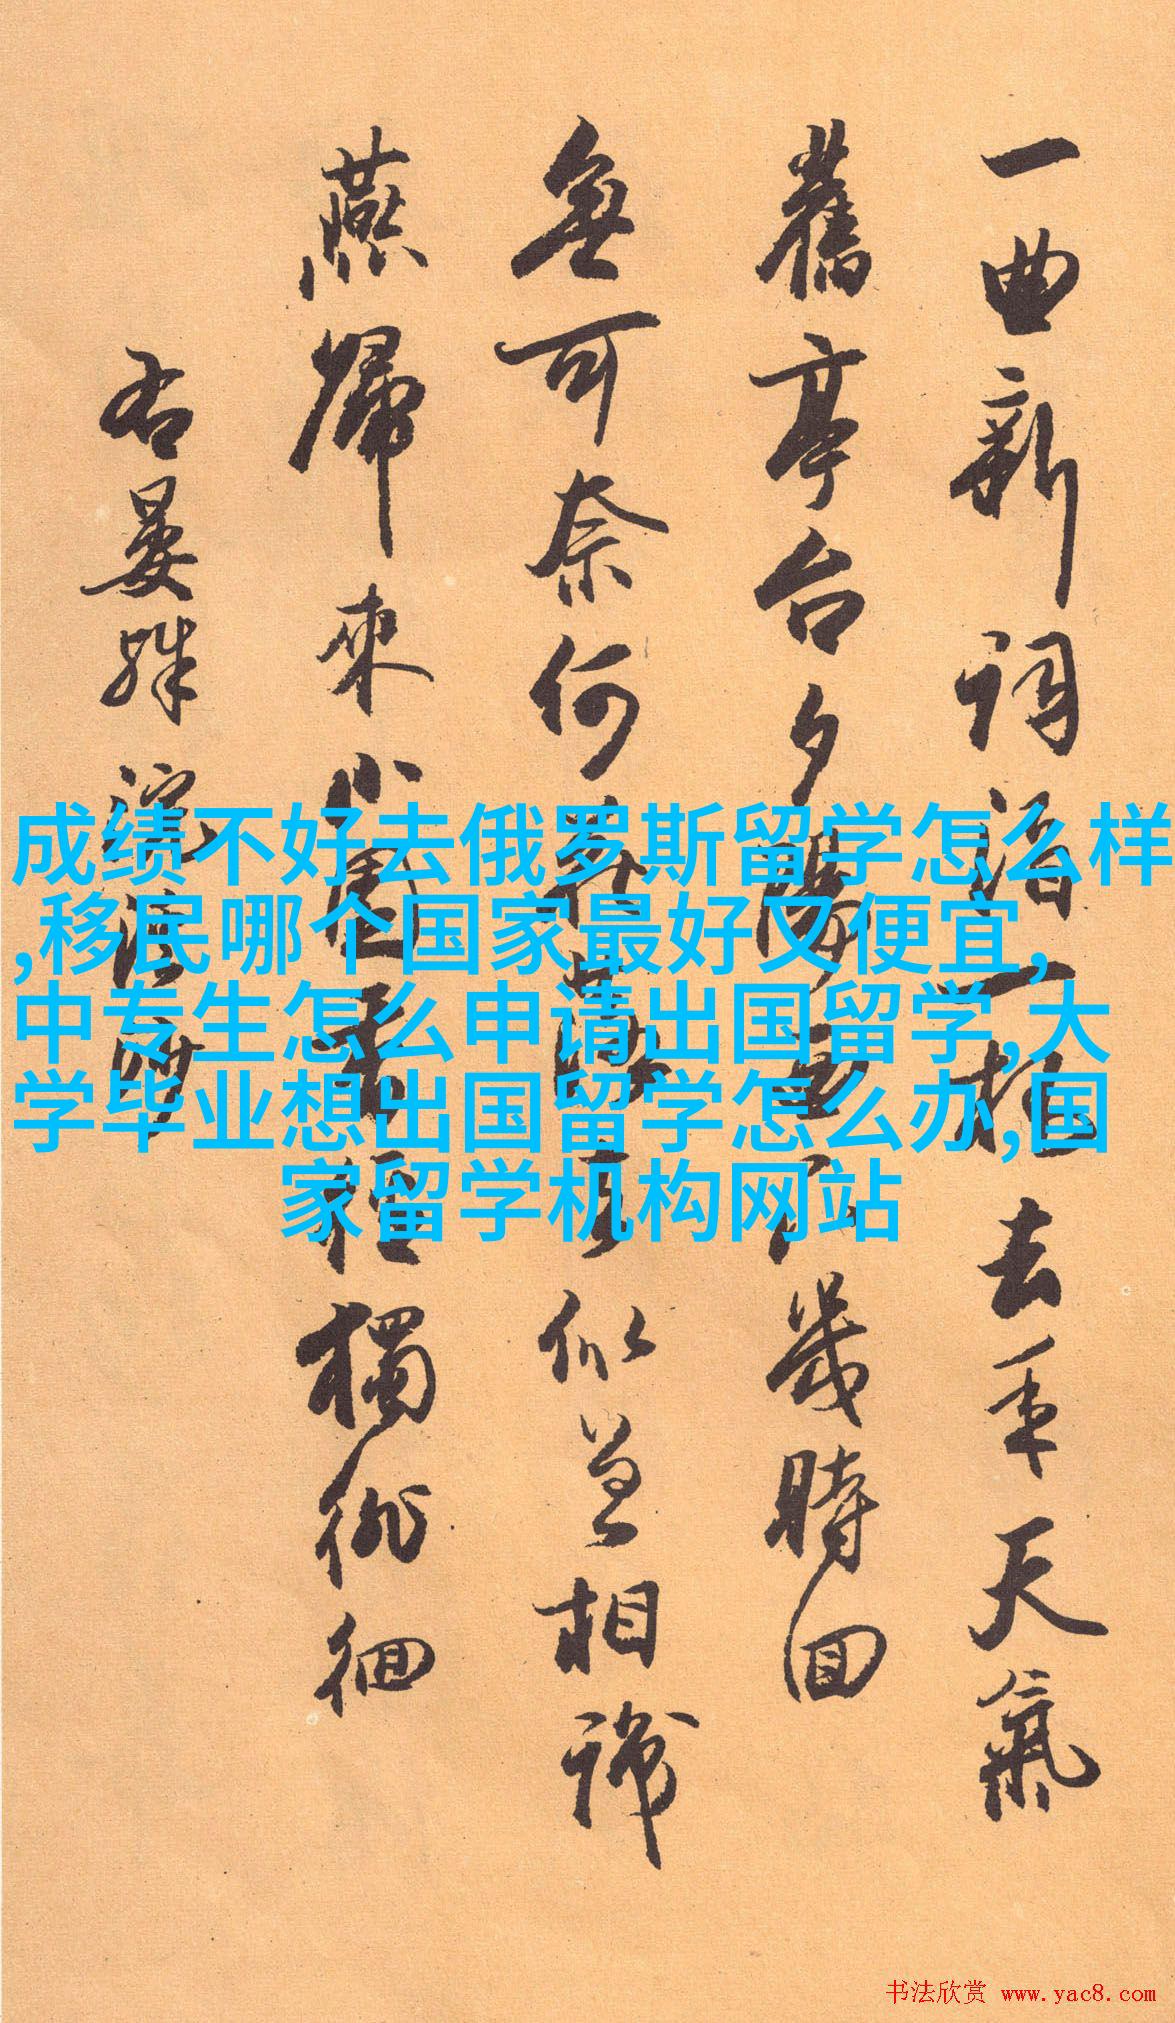 一曲新詞酒一杯去年天氣
舊亭台夕陽西下幾時回
無可奈何花落去似曾相識
燕歸來小園香徑獨徘徊
右晏殊浣溪沙
成绩不好去俄罗斯留学怎么样
,移民哪个国家最好又便宜,
中专生怎么申请出国留学,大
学毕业想出国留学怎么办,国
家留学机构网站
书法欣赏 www.yac8.com